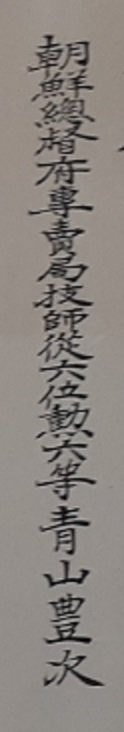 朝鮮總督府專賣局技師從六位勳六等青山豊次